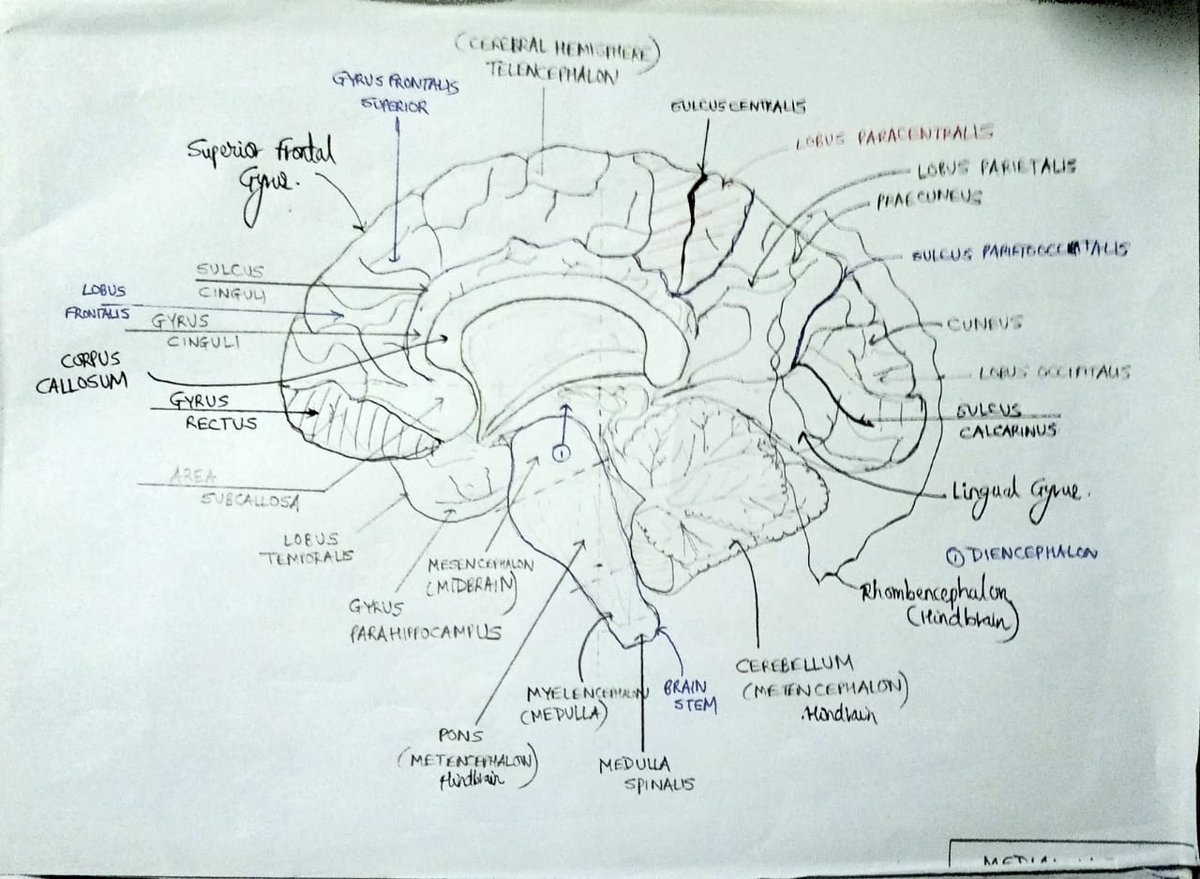 (CEREBRAL HEMISPHERE)
TELENCEPHALON
GYRUS FRONTALIS
SUPERIOR
SULCUS CENTRALIS
LOBUS PARACENTRALIS
Superior Frontal
Gyrus.
LOBUS PARIETALIS
PRAECUNEUS
SULCUS PARIETOOCCIPITALIS
SULCUS
CINGULI
LOBUS
FRONTALIS
GYRUS
CINGULI
CUNEUS
CORPUS
CALLOSUM
LOBUS OCCIPITALIS
GYRUS
RECTUS
SULCUS
CALCARINUS
AREA
SUBCALLOSA
Lingual Gyrus.
LOBUS
TEMPORALIS
1
① DIENCEPHALON
MESENCEPHALON
(MIDBRAIN)
Rhombencephalon
(Hindbrain)
GYRUS
PARAHIPPOCAMPUS
CEREBELLUM
(METENCEPHALON)
Hindbrain
MYELENCEPHALON
(MEDULLA)
BRAIN
STEM
PONS
(METENCEPHALON)
Hindbrain
MEDULLA
SPINALIS